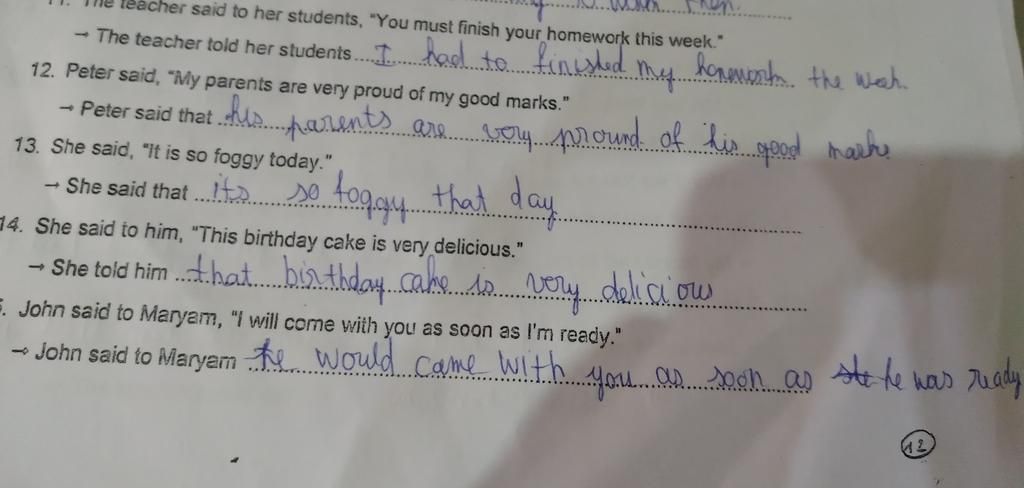 The teacher said to her students, "You must finish your homework this week."
→ The teacher told her students I had to finished my homework the week.
12. Peter said, "My parents are very proud of my good marks."
→ Peter said that his parents are very pround of his good marks
13. She said, "It is so foggy today."
→ She said that its so foggy that day
14. She said to him, "This birthday cake is very delicious."
→ She told him that birthday cake is very delicious
. John said to Maryam, "I will come with you as soon as I'm ready."
→ John said to Maryam he would came with you as soon as she he was ready
12